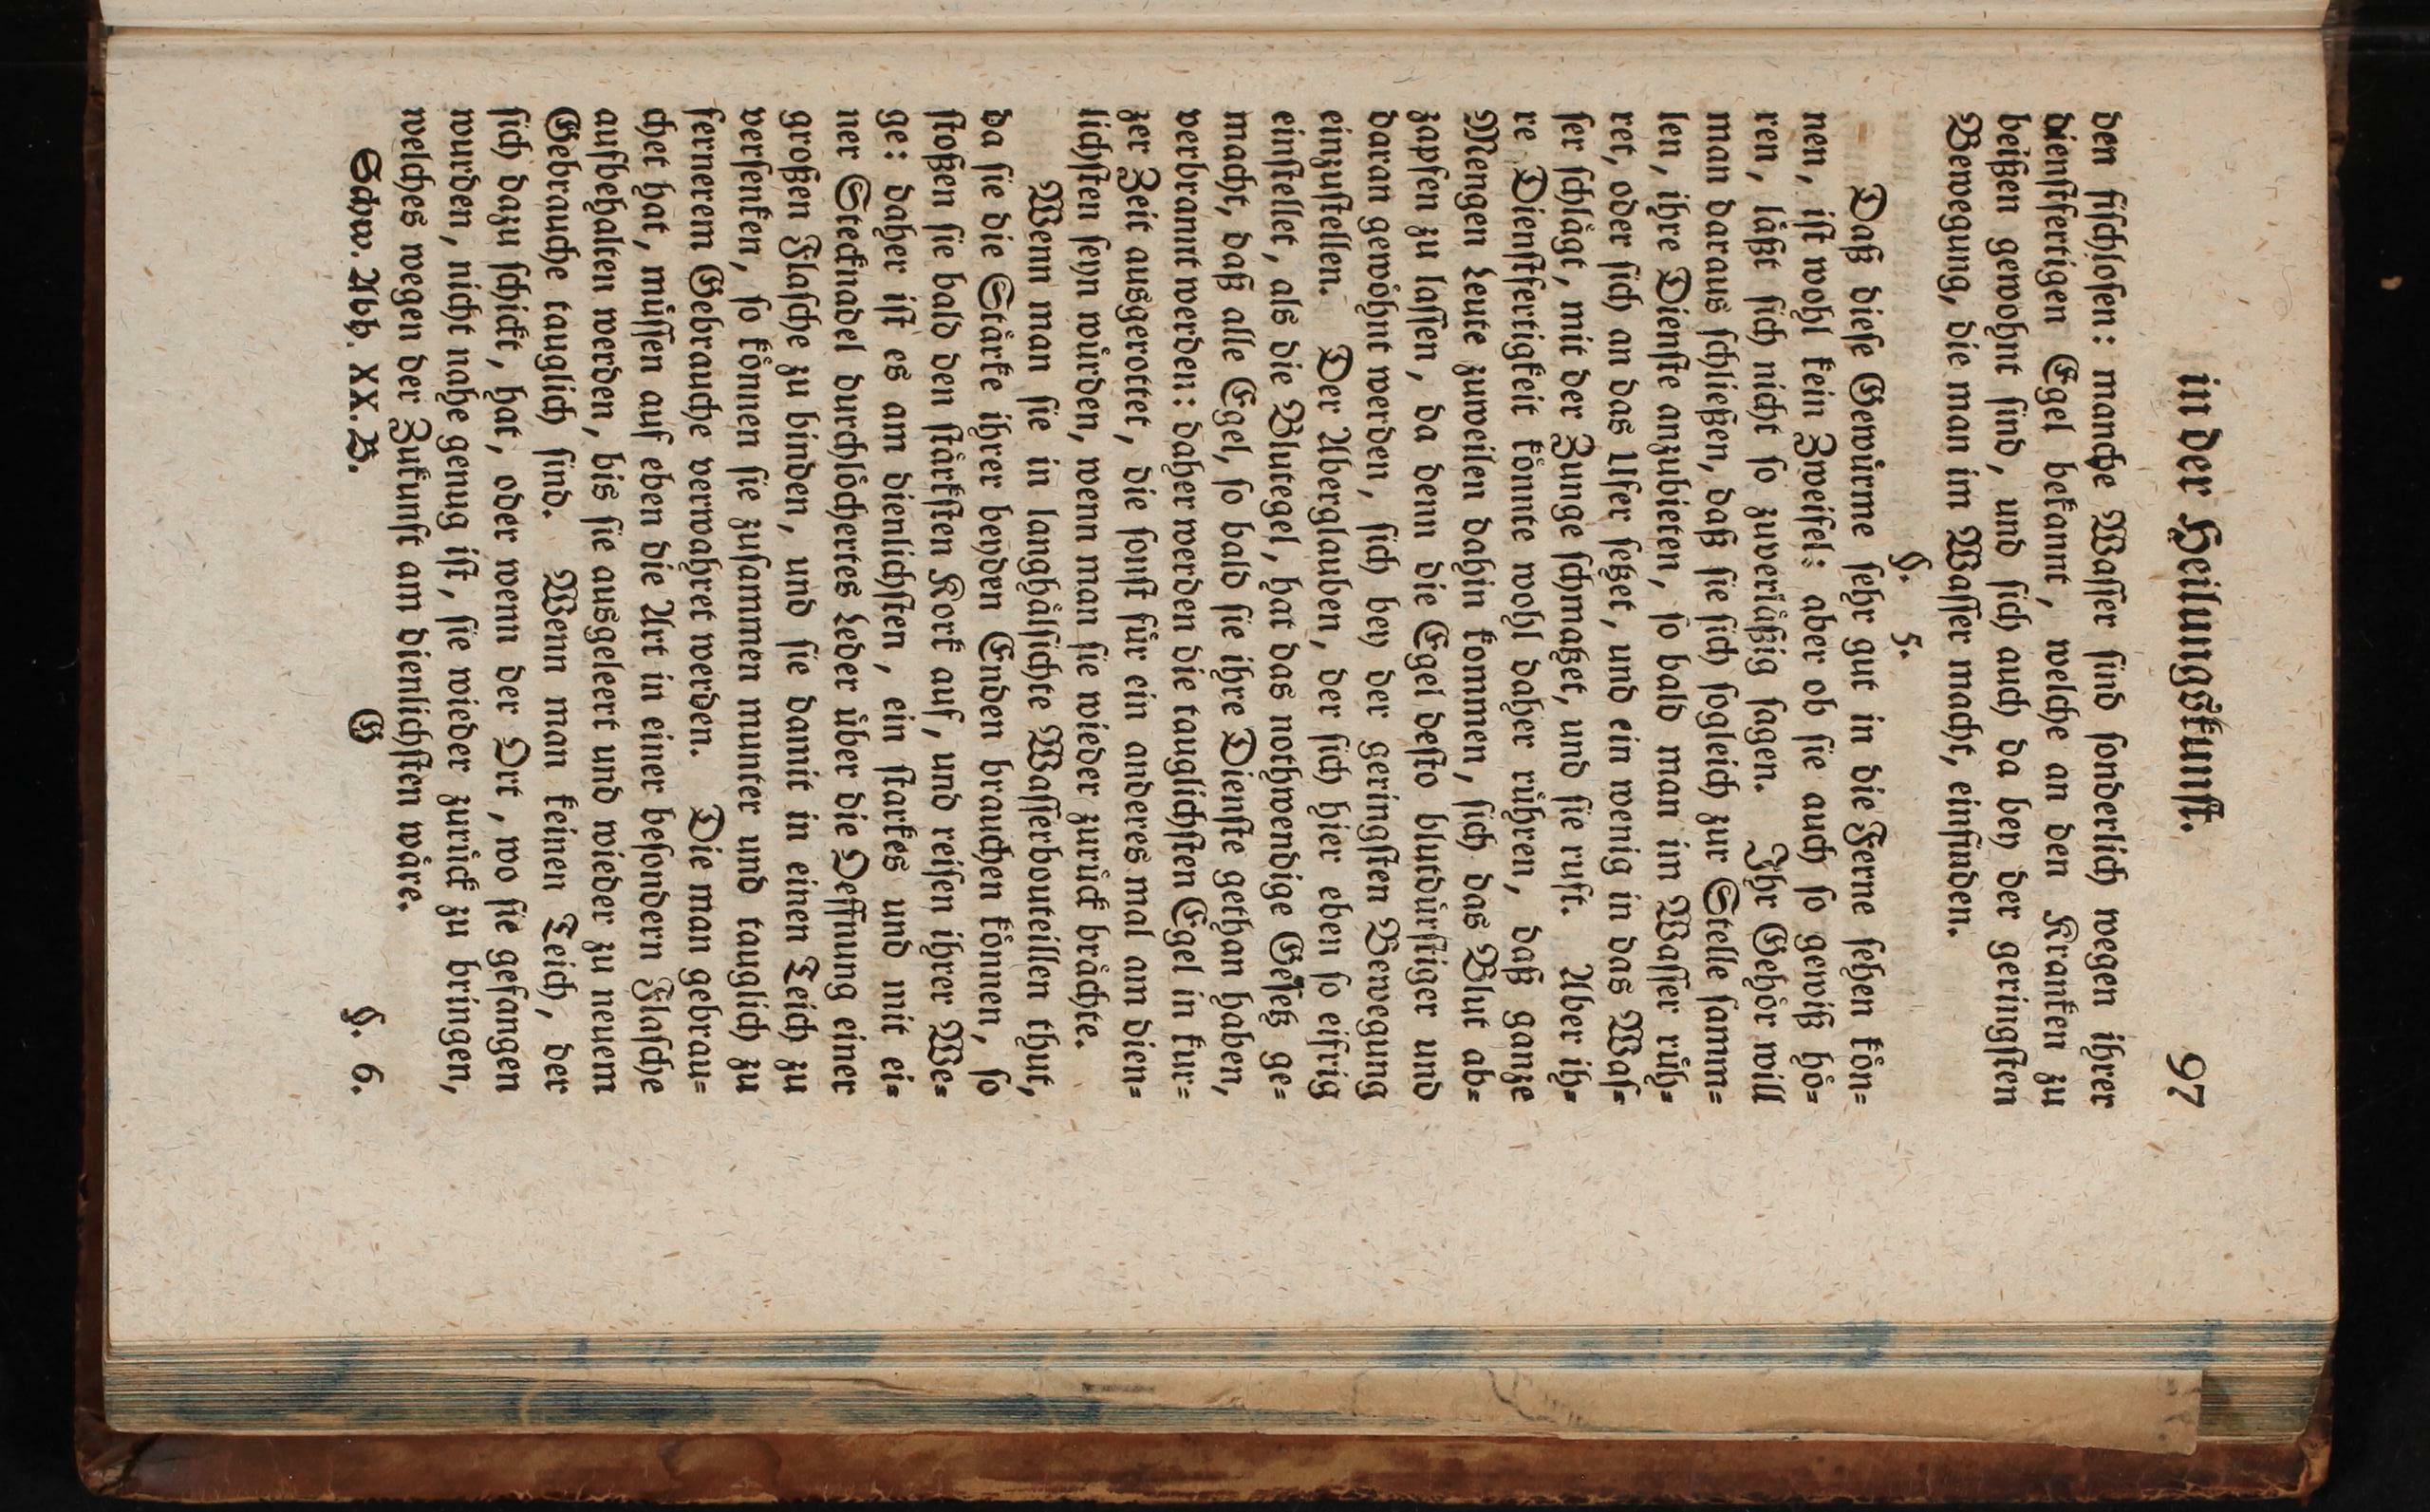 in der Heilungskunst. 97
den fischlosen: manche Wasser sind sonderlich wegen ihrer
dienstfertigen Egel bekannt, welche an den Kranken zu
beißen gewohnt sind, und sich auch da bey der geringsten
Bewegung, die man im Wasser macht, einfinden.
§. 5.
Daß diese Gewürme sehr gut in die Ferne sehen kön-
nen, ist wohl kein Zweifel: aber ob sie auch so gewiß hö-
ren, läßt sich nicht so zuverläßig sagen. Ihr Gehör will
man daraus schließen, daß sie sich sogleich zur Stelle samm-
len, ihre Dienste anzubieten, so bald man im Wasser rüh-
ret, oder sich an das Ufer setzet, und ein wenig in das Was-
ser schlägt, mit der Zunge schmatzet, und sie ruft. Aber ih-
re Dienstfertigkeit könnte wohl daher rühren, daß ganze
Mengen Leute zuweilen dahin kommen, sich das Blut ab-
zapfen zu lassen, da denn die Egel desto blutdürstiger und
daran gewöhnt werden, sich bey der geringsten Bewegung
einzustellen. Der Aberglauben, der sich hier eben so eifrig
einstellet, als die Blutegel, hat das nothwendige Gesetz ge-
macht, daß alle Egel, so bald sie ihre Dienste gethan haben,
verbrannt werden: daher werden die tauglichsten Egel in kur-
zer Zeit ausgerottet, die sonst für ein anderes mal am dien-
lichsten seyn würden, wenn man sie wieder zurück brächte.
Wenn man sie in langhälsichte Wasserbouteillen thut,
da sie die Stärke ihrer beyden Enden brauchen können, so
stoßen sie bald den stärksten Kork auf, und reisen ihrer We-
ge: daher ist es am dienlichsten, ein starkes und mit ei-
ner Stecknadel durchlöchertes Leder über die Oeffnung einer
großen Flasche zu binden, und sie damit in einen Teich zu
versenken, so können sie zusammen munter und tauglich zu
fernerem Gebrauche verwahret werden. Die man gebrau-
chet hat, müssen auf eben die Art in einer besondern Flasche
aufbehalten werden, bis sie ausgeleert und wieder zu neuem
Gebrauche tauglich sind. Wenn man keinen Teich, der
sich dazu schickt, hat, oder wenn der Ort, wo sie gefangen
wurden, nicht nahe genug ist, sie wieder zurück zu bringen,
welches wegen der Zukunft am dienlichsten wäre.
Schw. Abh. XX. B. G §. 6.